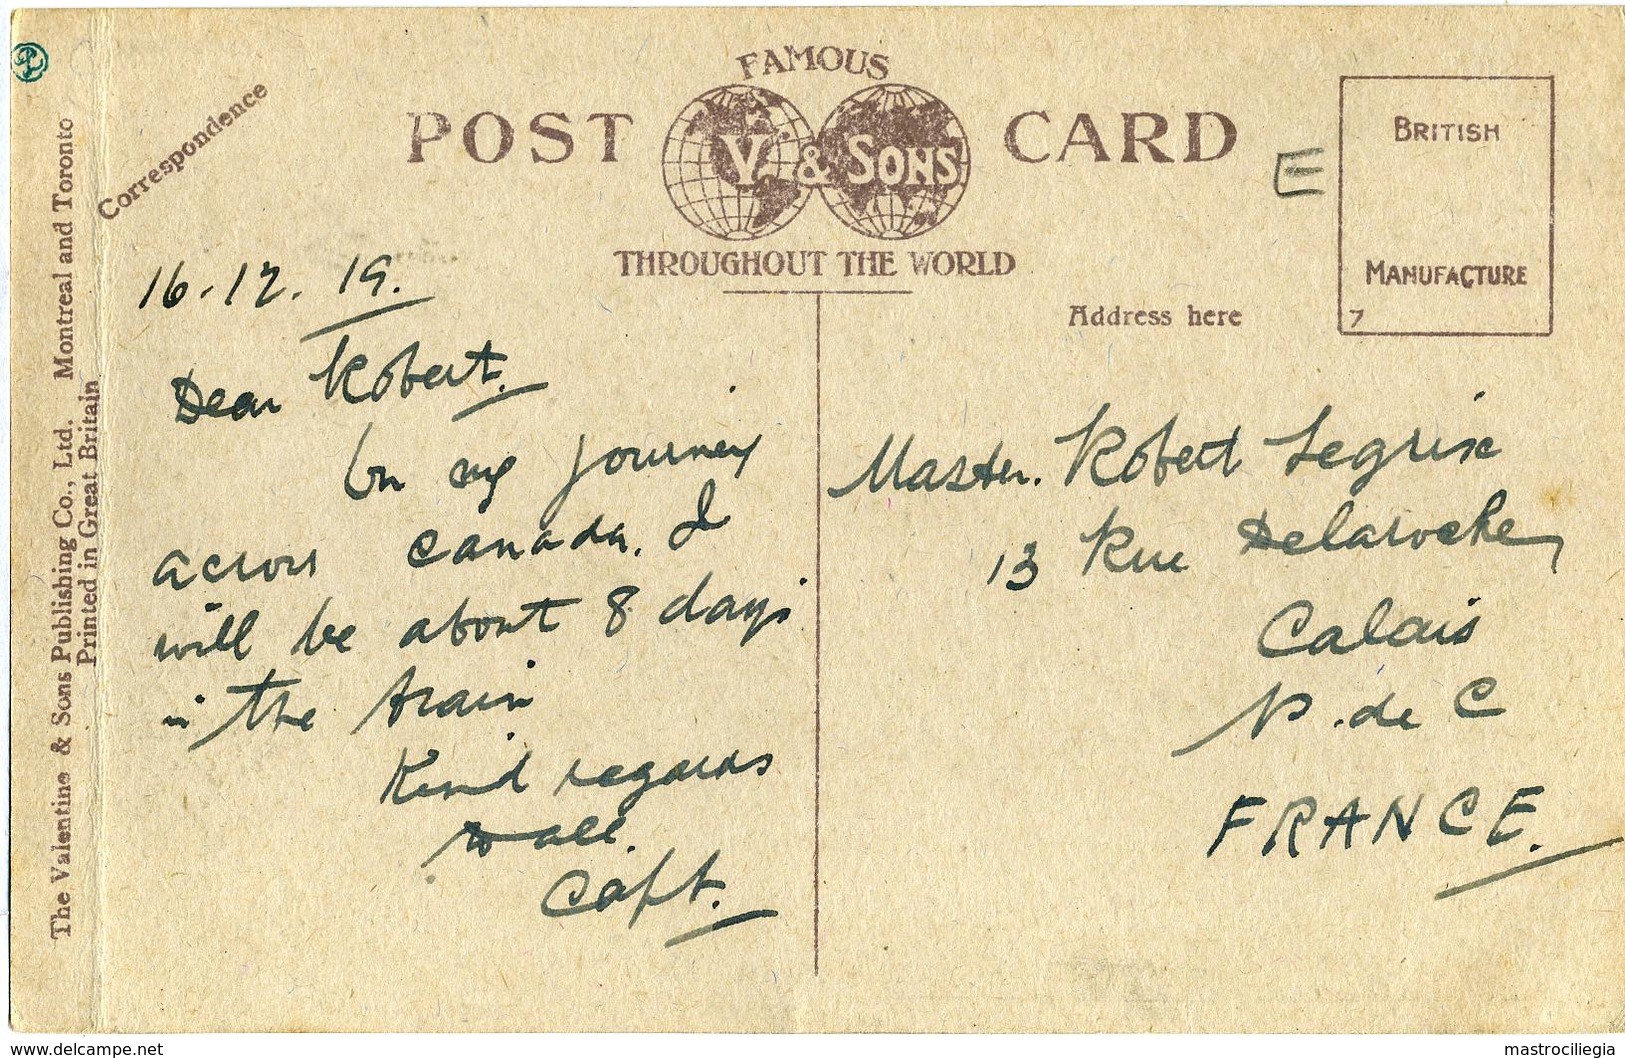 The Valentine & Sons Publishing Co., Ltd. Montreal and Toronto
Printed in Great Britain
Correspondence
FAMOUS
POST CARD
V. & SONS
THROUGHOUT THE WORLD
E
BRITISH
MANUFACTURE
7
Address here
16.12.19.
Dear Robert.
On my journey
across Canada. I
will be about 8 days
in the train
Kind regards
to all.
Capt.
Master. Robert Legrix
13 Rue Delaroche,
Calais
P. de C
FRANCE.
www.delcampe.net
mastrociliegia